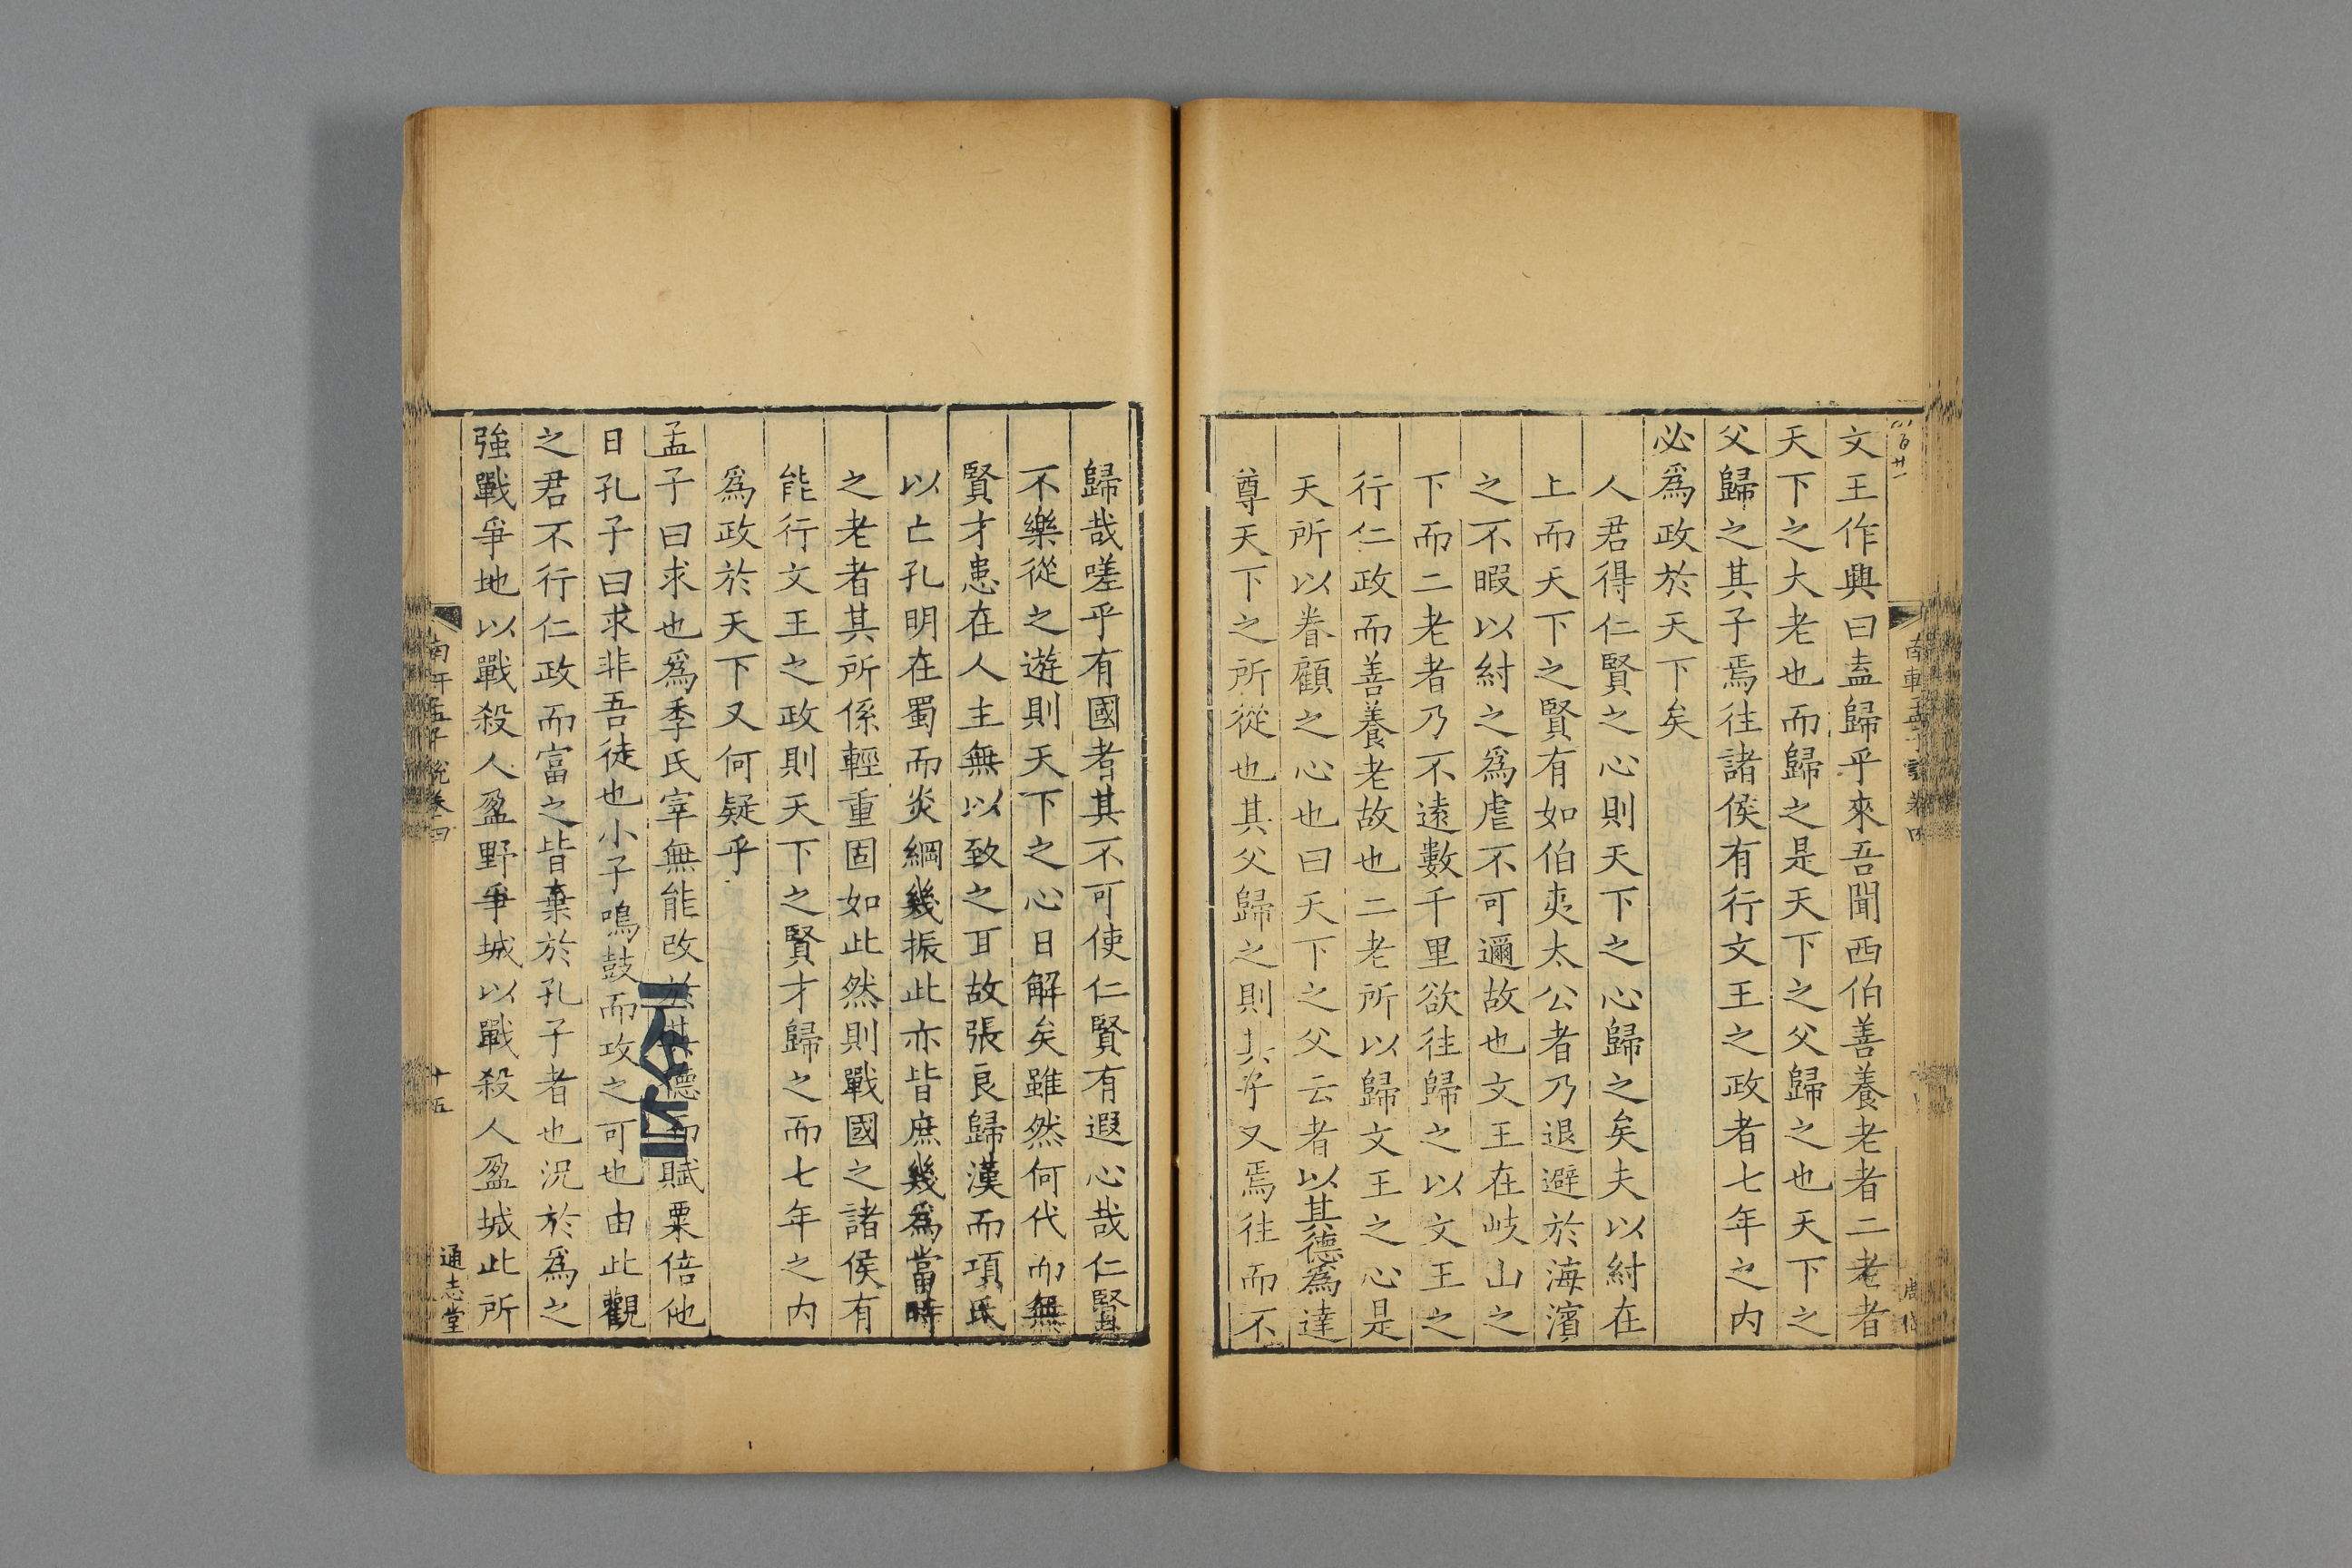 文王作興曰盍歸乎來吾聞西伯善養老者二老者
天下之大老也而歸之是天下之父歸之也天下之
父歸之其子焉往諸侯有行文王之政者七年之内
必爲政於天下矣
人君得仁賢之心則天下之心歸之矣夫以紂在
上而天下之賢有如伯夷太公者乃退避於海濱
之不暇以紂之爲虐不可邇故也文王在岐山之
下而二老者乃不遠數千里欲往歸之以文王之
行仁政而善養老故也二老所以歸文王之心是
天所以眷顧之心也曰天下之父云者以其德爲達
尊天下之所從也其父歸之則其子又焉往而不
歸哉嗟乎有國者其不可使仁賢有遐心哉仁賢
不樂從之遊則天下之心日解矣雖然何代而無
賢才患在人主無以致之耳故張良歸漢而項氏
以亡孔明在蜀而炎綱幾振此亦皆庶幾爲當時
之老者其所係輕重固如此然則戰國之諸侯有
能行文王之政則天下之賢才歸之而七年之内
爲政於天下又何疑乎
孟子曰求也爲季氏宰無能改於其德而賦粟倍他
日孔子曰求非吾徒也小子鳴鼓而攻之可也由此觀
之君不行仁政而富之皆棄於孔子者也況於爲之
強戰爭地以戰殺人盈野爭城以戰殺人盈城此所
南軒孟子說卷四
十五
通志堂